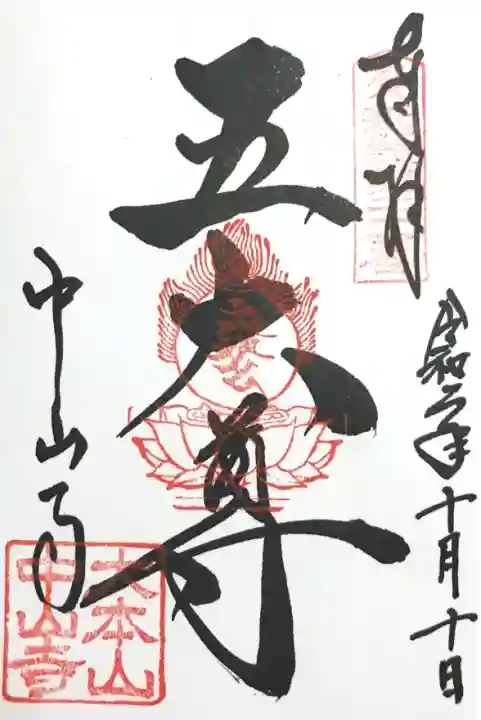 奉拝
令和二年十月十日
五大尊
中山寺
大本山
中山寺